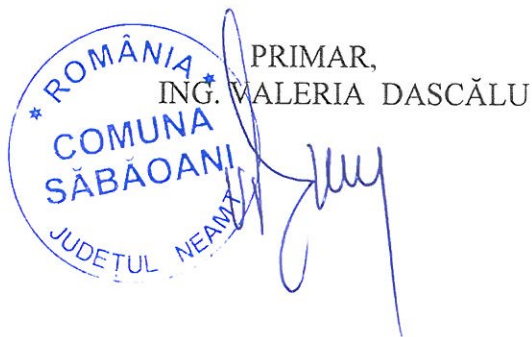 PRIMAR,
ING. VALERIA DASCĂLU
* ROMÂNIA *
COMUNA
SĂBĂOANI
JUDEȚUL NEAMȚ